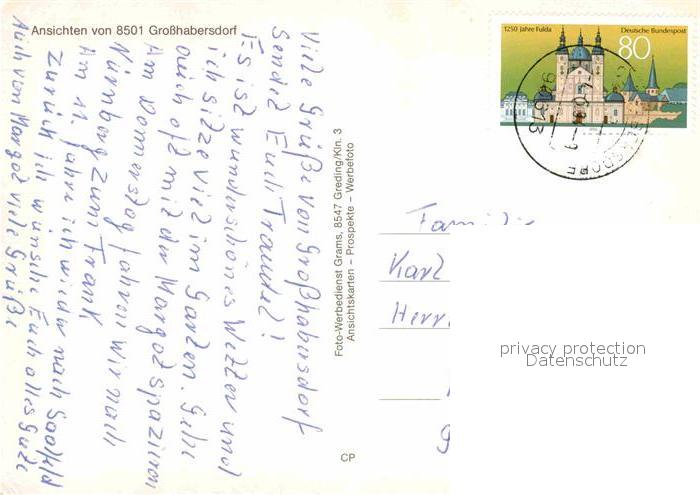 Ansichten von 8501 Großhabersdorf
Viele Grüße von Großhabersdorf
sendet Euch Traudel!
Es ist wunderschönes Wetter und
ich sitze viel im Garten. Gehe
auch oft mit der Margot spazieren
Am Donnerstag fahren wir nach
Nürnberg zum Frank
Am 11. fahre ich wieder nach Saalfeld
zurück ich wünsche Euch alles gute
Auch von Margot viele Grüße
Foto-Werbedienst Grams, 8547 Greding/Kin. 3
Ansichtskarten – Prospekte – Werbefoto
CP
1250 Jahre Fulda
Deutsche Bundespost
80
8501
Familie
Karl
Herr
privacy protection
Datenschutz